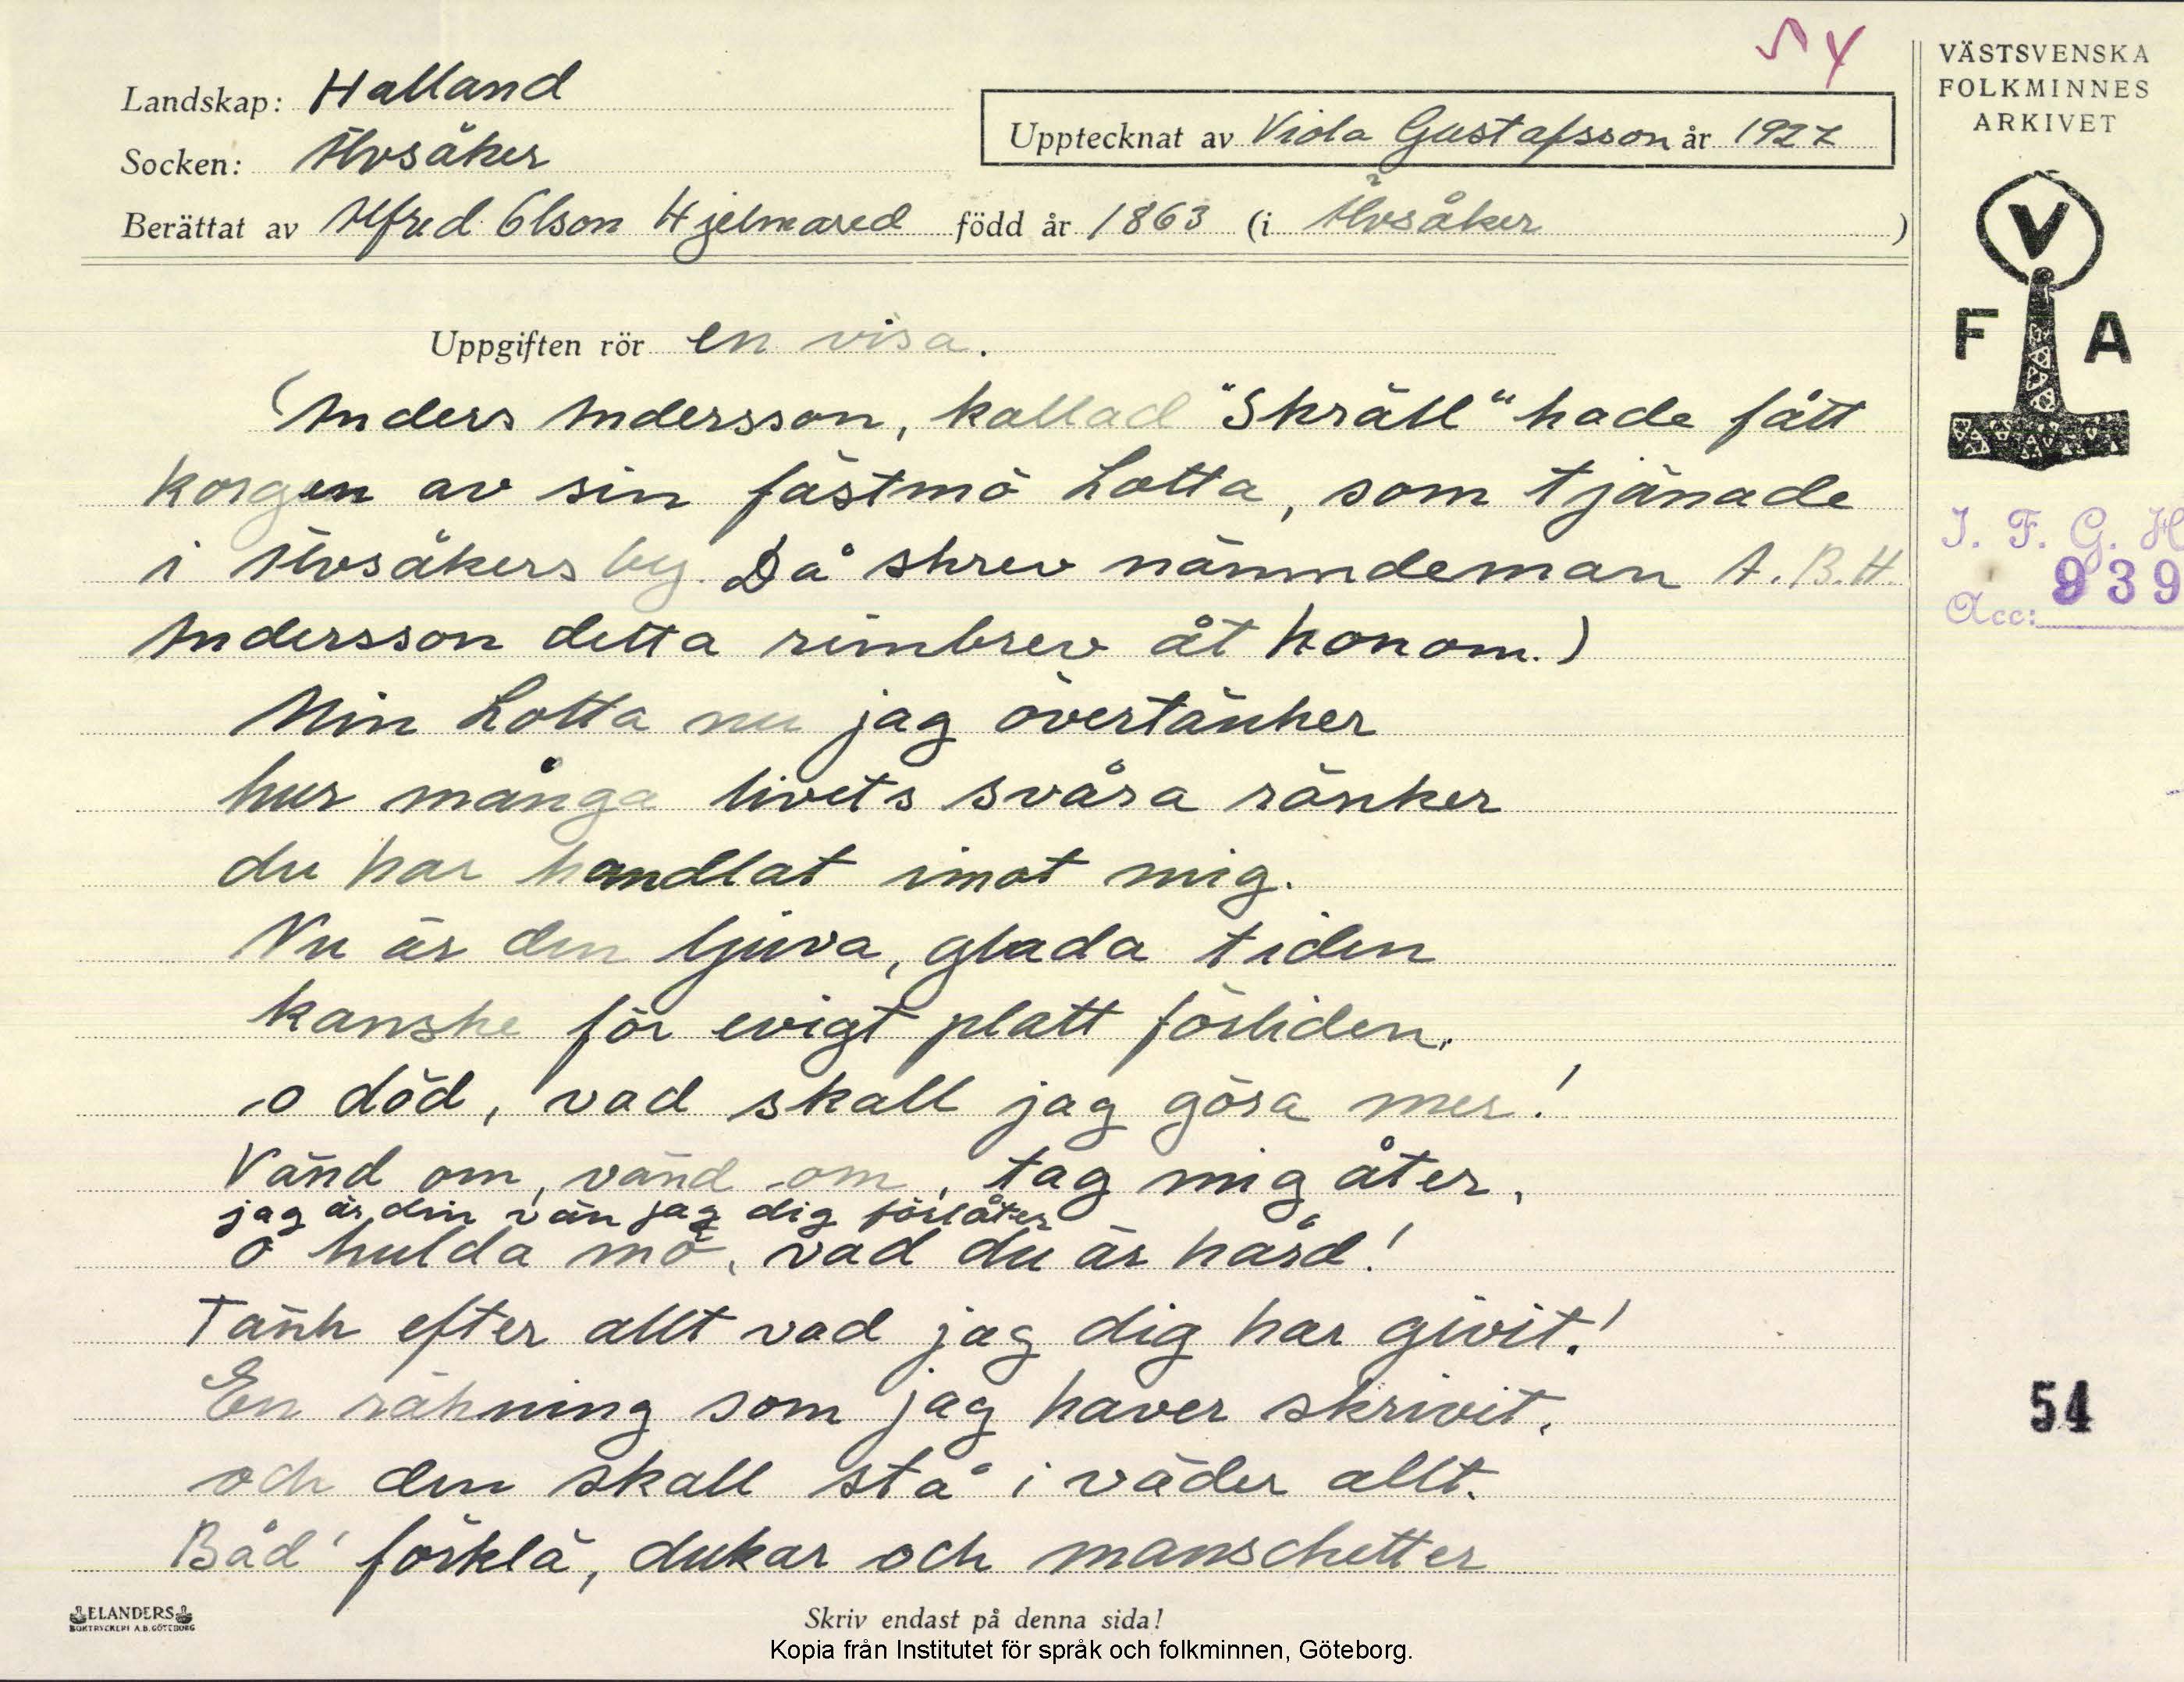 Landskap: Halland
Socken: Älvsåker
Upptecknat av Viola Gustafsson år 1927
Berättat av Alfred Olson Hjelmared född år 1863 (i Älvsåker)
VÄSTSVENSKA
FOLKMINNES
ARKIVET
V
F A
I. F. G. H
Acc: 939
Uppgiften rör en visa.
(Anders Andersson, kallad "Skräll" hade fått
korgen av sin fästmö Lotta, som tjänade
i Älvsåkers by. Då skrev nämndeman A. B. H.
Andersson detta rimbrev åt honom.)
Min Lotta nu jag övertänker
hur många livets svåra ränker
du har handlat imot mig.
Nu är den ljuva, glada tiden
kanske för evigt platt förliden.
o död, vad skall jag göra mer!
Vänd om, vänd om, tag mig åter,
jag är din vän jag dig förlåter
o hulda mö, vad du är hård!
Tänk efter allt vad jag dig har givit!
En räkning som jag haver skrivit,
och den skall stå i väder allt.
Båd' förklä, dukar och manschetter
54
ELANDERS
BOKTRYCKERI A.B. GÖTEBORG
Skriv endast på denna sida!
Kopia från Institutet för språk och folkminnen, Göteborg.